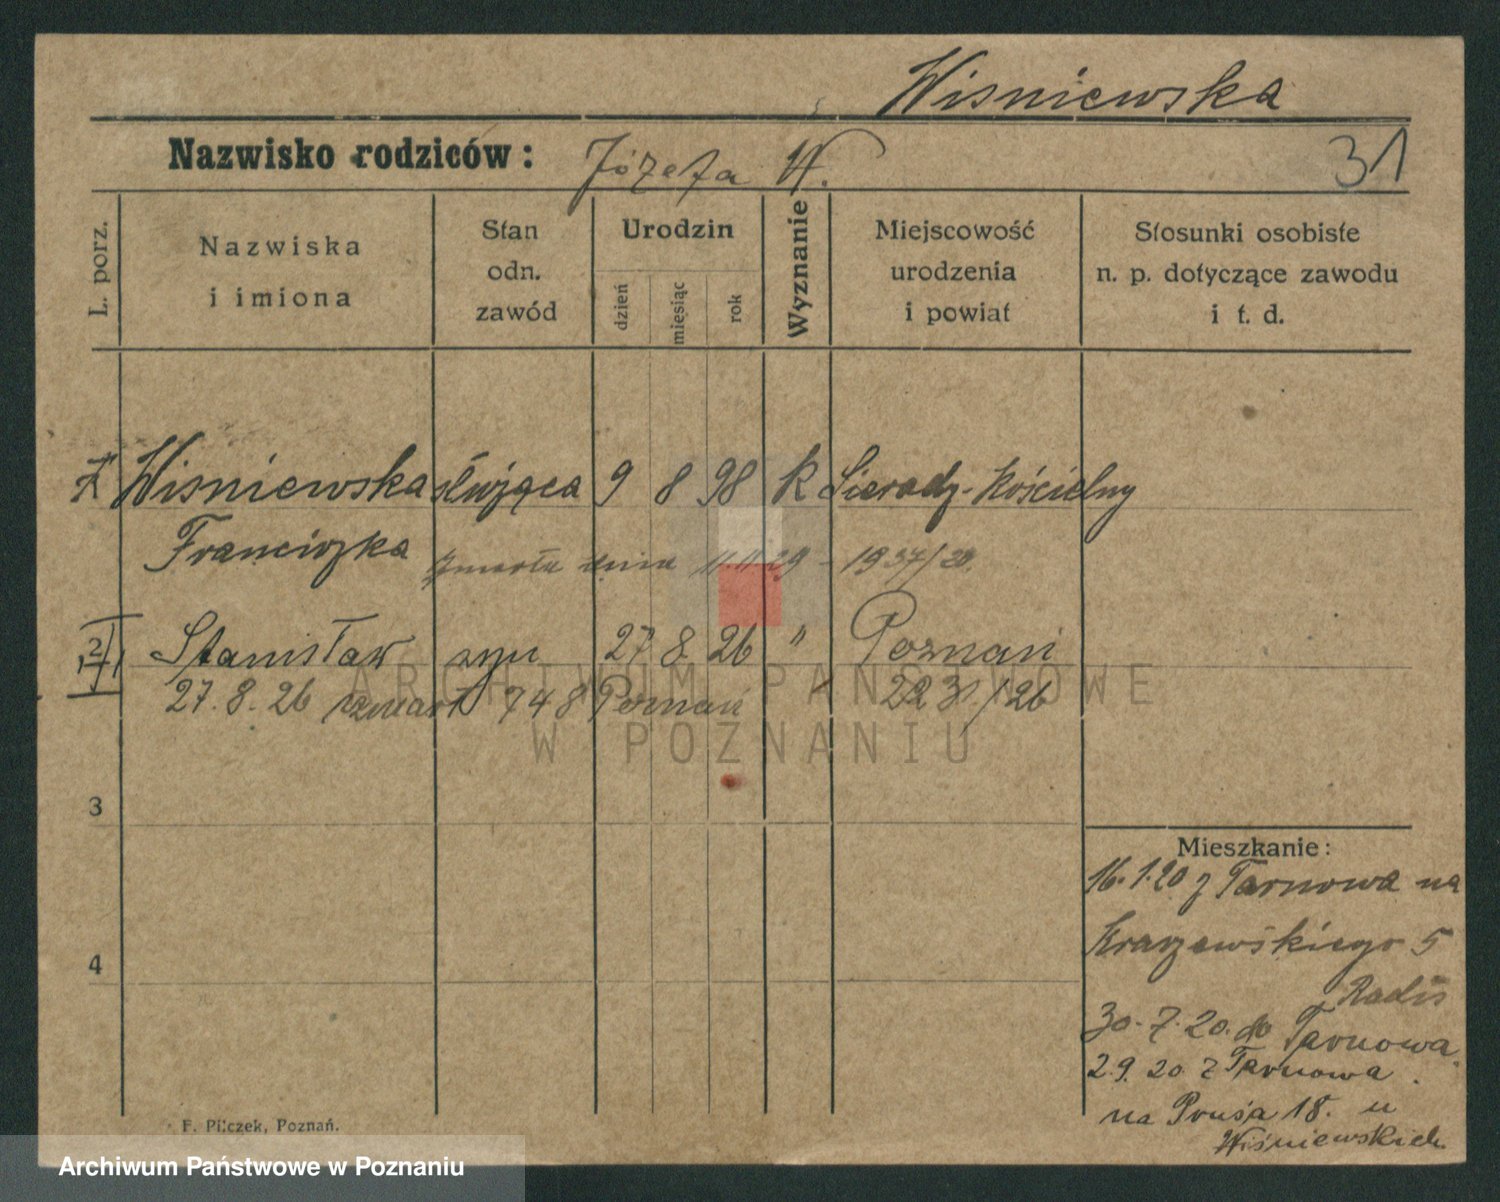 Wisniewska
Nazwisko rodziców: Józefa W. 31
L. porz.
Nazwiska
i imiona
Stan
odn.
zawód
Urodzin
dzień
miesiąc
rok
Wyznanie
Miejscowość
urodzenia
i powiat
Stosunki osobiste
n. p. dotyczące zawodu
i t. d.
Wisniewska służąca 9 8 98 k Sieradz-Kościelny
Franciszka
zmarła dnia 11.11 29 - 1937/29.
2 Stanisław syn 27 8 26 " Poznań
27.8.26 zmarł 748 Poznań 2231/26
3
4
Mieszkanie:
16.1.20 z Tarnowa na
Kraszewskiego 5
30.7.20. do Tarnowa.
2.9.20 z Tarnowa.
na Prusa 18. u
Wiśniewskich
F. Pilczek, Poznań.
ARCHIWUM PAŃSTWOWE
W POZNANIU
Archiwum Państwowe w Poznaniu